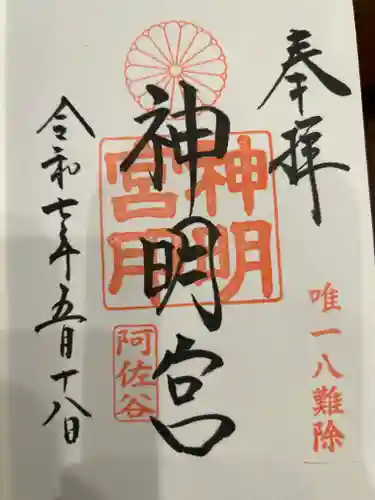 奉拝
唯一八難除
神明宮
神明
宮用
阿佐谷
令和七年五月十八日